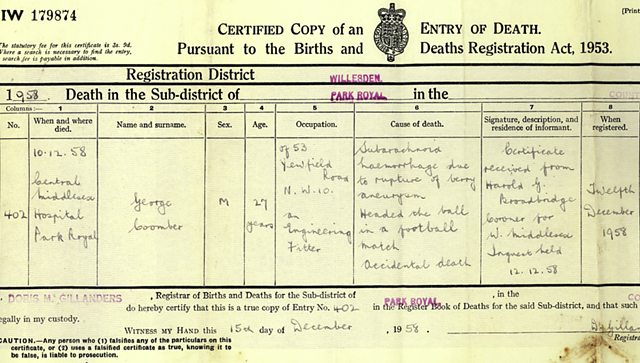 IW 179874
[Print
CERTIFIED COPY of an ENTRY OF DEATH.
The statutory fee for this certificate is 3s. 9d.
Where a search is necessary to find the entry,
search fee is payable in addition.
Pursuant to the Births and Deaths Registration Act, 1953.
Registration District WILLESDEN
1958 Death in the Sub-district of PARK ROYAL in the COUNT
Columns:— 1 2 3 4 5 6 7 8
No. When and where died. Name and surname. Sex. Age. Occupation. Cause of death. Signature, description, and residence of informant. When registered.
402
10.12.58
Central
Middlesex
Hospital
Park Royal
George
Coomber
M
27
years
of 53
Yewfield
Road
N.W.10.
an
Engineering
Fitter
Subarachnoid
haemorrhage due
to rupture of berry
aneurysm
Headed the ball
in a football
match
Accidental death
Certificate
received from
Harold G.
Broadbridge
Coroner for
W. Middlesex
Inquest held
12.12.58
Twelfth
December
1958
DORIS M. GILLANDERS, Registrar of Births and Deaths for the Sub-district of PARK ROYAL, in the CO
do hereby certify that this is a true copy of Entry No. 402 in the Register Book of Deaths for the said Sub-district, and that such
egally in my custody.
WITNESS MY HAND this 15th day of December, 1958.
Registr
CAUTION.—Any person who (1) falsifies any of the particulars on this
certificate, or (2) uses a falsified certificate as true, knowing it to
be false, is liable to prosecution.